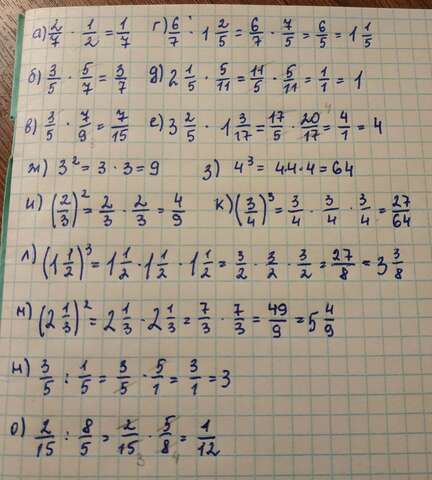 а) 2/7 · 1/2 = 1/7 г) 6/7 · 1 2/5 = 6/7 · 7/5 = 6/5 = 1 1/5
б) 3/5 · 5/7 = 3/7 д) 2 1/5 · 5/11 = 11/5 · 5/11 = 1/1 = 1
в) 3/5 · 7/9 = 7/15 е) 3 2/5 · 1 3/17 = 17/5 · 20/17 = 4/1 = 4
ж) 3² = 3 · 3 = 9 з) 4³ = 4·4·4 = 64
и) (2/3)² = 2/3 · 2/3 = 4/9 к) (3/4)³ = 3/4 · 3/4 · 3/4 = 27/64
л) (1 1/2)³ = 1 1/2 · 1 1/2 · 1 1/2 = 3/2 · 3/2 · 3/2 = 27/8 = 3 3/8
м) (2 1/3)² = 2 1/3 · 2 1/3 = 7/3 · 7/3 = 49/9 = 5 4/9
н) 3/5 : 1/5 = 3/5 · 5/1 = 3/1 = 3
о) 2/15 : 8/5 = 2/15 · 5/8 = 1/12